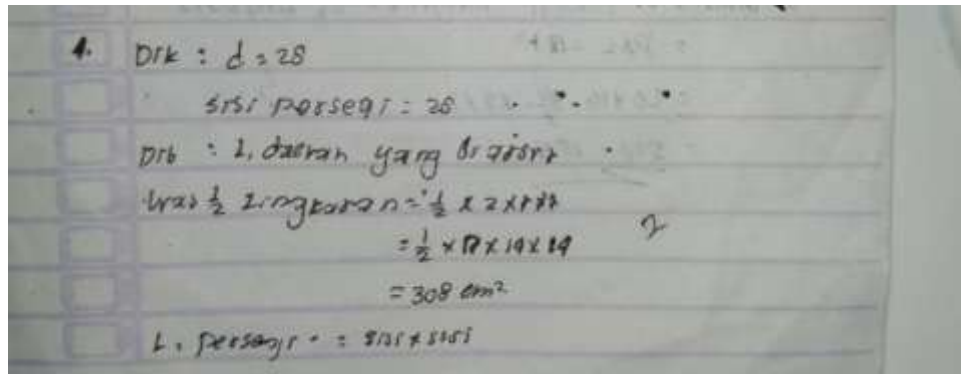 1. Dik : d = 28
sisi persegi = 28
Dib : L. daerah yang diarsir
Luas ½ Lingkaran = ½ x
= ½ x π x 14 x 14
= 308 cm²
L. persegi = sisi x sisi